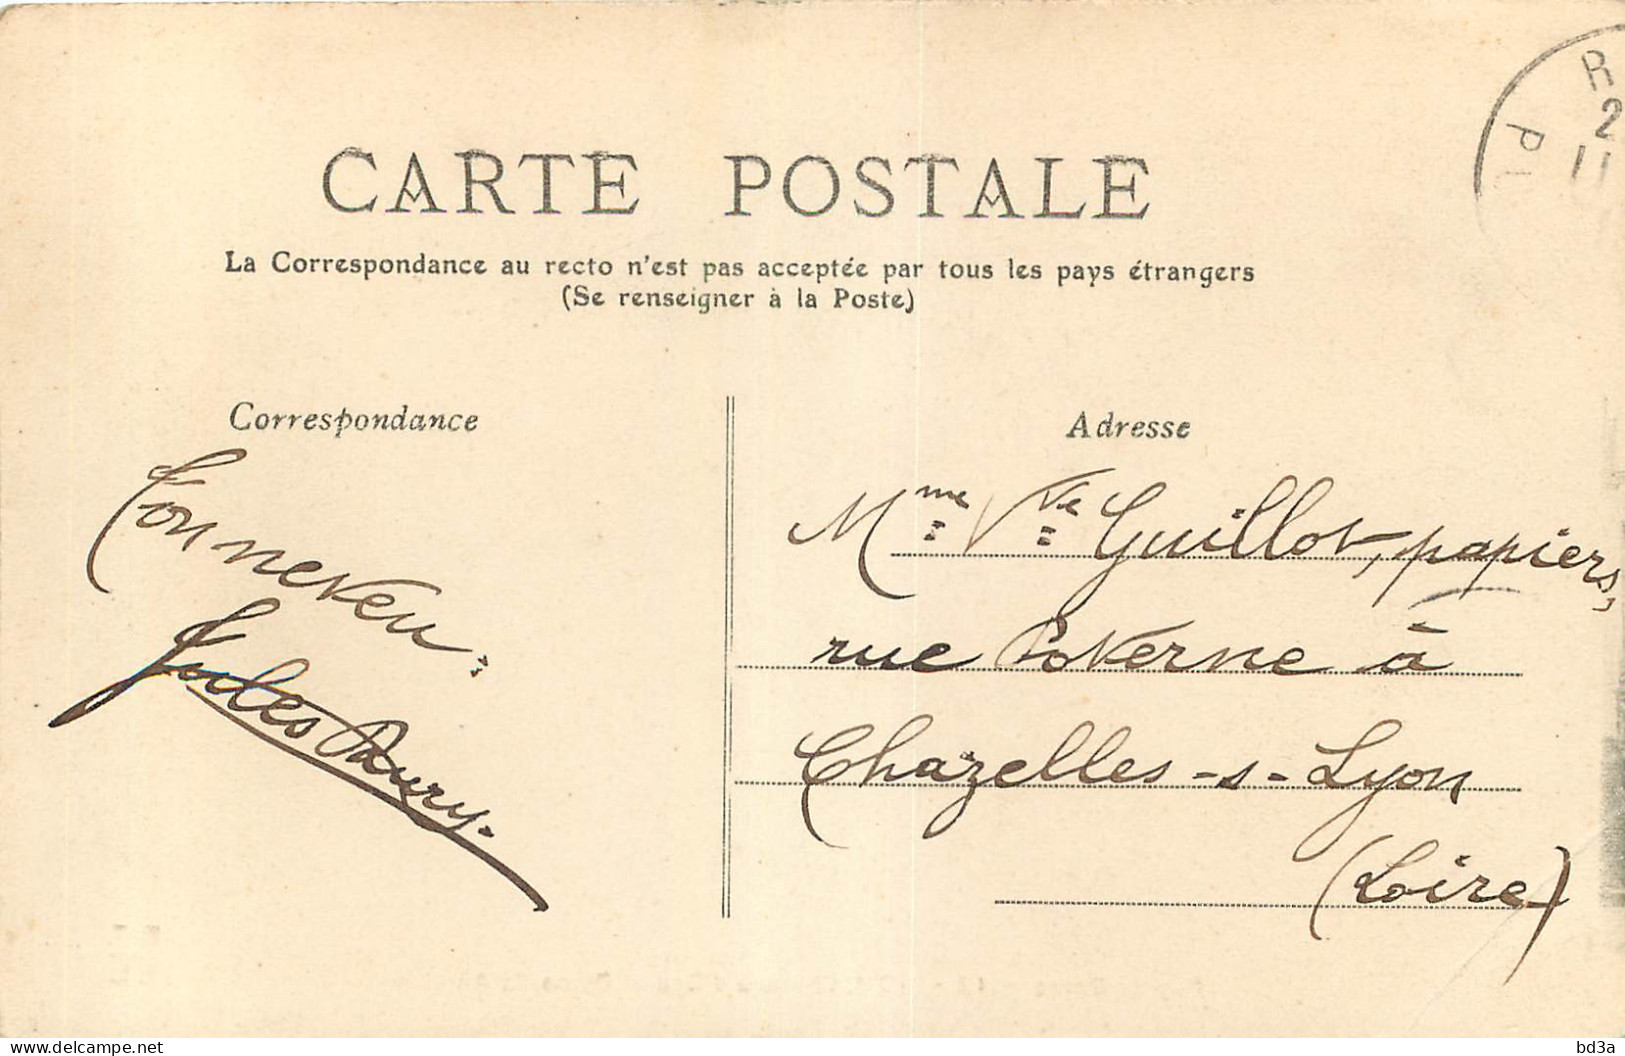 CARTE POSTALE
La Correspondance au recto n'est pas acceptée par tous les pays étrangers
(Se renseigner à la Poste)
Correspondance
Ton neveu :
Jules
Adresse
Mme Vve Guillot, papiers,
rue Voverne à
Chazelles-s-Lyon
(Loire)
R
2
11
P
delcampe.net
bd3a